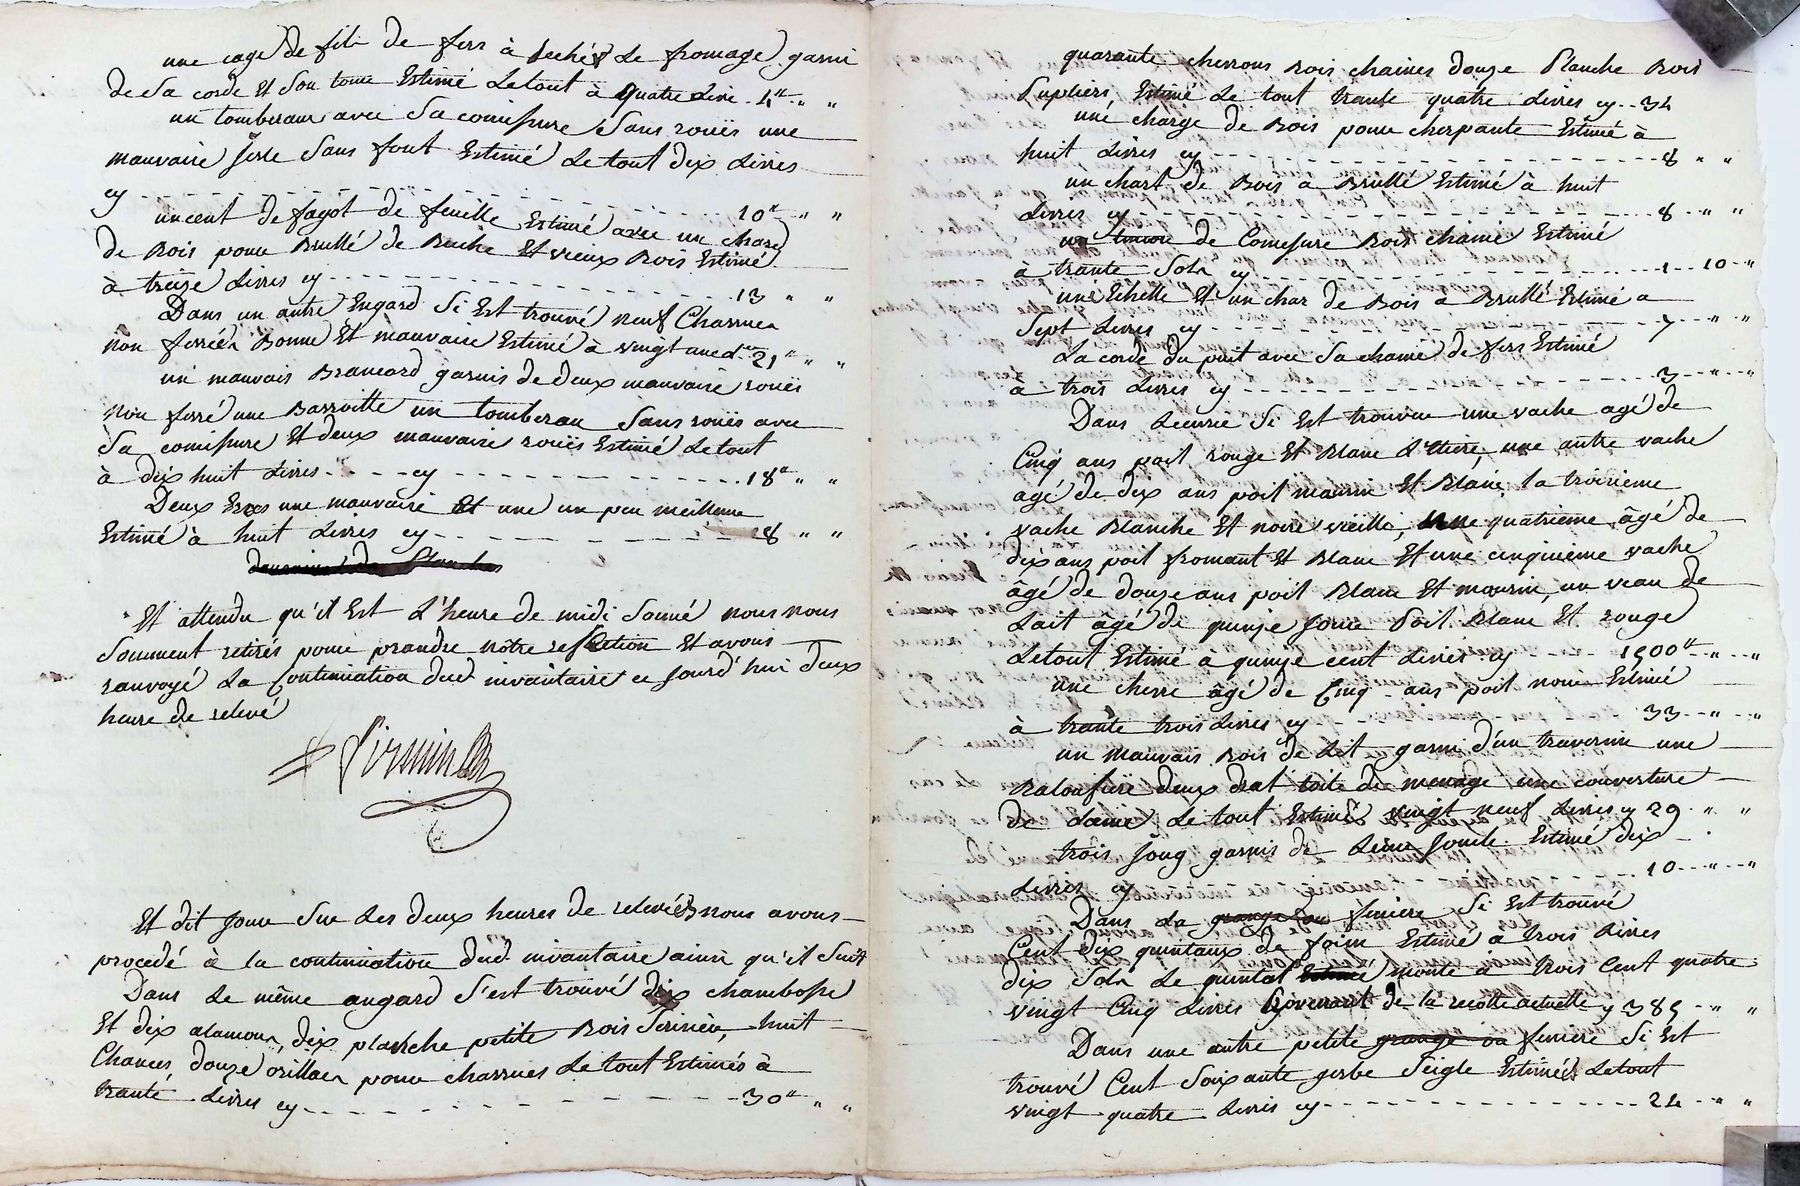 une cage de fili de fers à seché le fromage garni
de Sa corde Et Son tour Estimé Letout à quatre Livre . 4tt " "
un tomberaux avec Sa comissure Sans rouës une
mauvaise Serle Sans font Estimé Le tout dix Livres
cy 10tt " "
un cent de fagot de feuille Estimé avec un chard
de Bois pour Brullé de Buche Et vieux Bois Estimé
à treize Livres cy 13 " "
Dans un autre Engard Si Est trouvé neuf Charrues
non ferrées Bonne Et mauvaise Estimé à vingt une L. 21tt " "
un mauvais Brancord garnis de deux mauvaise rouës
non ferré une Barroitte un tomberau Sans rouës avec
Sa comissure Et deux mauvaise rouës Estimé Le tout
à dix huit Livres cy 18tt " "
Deux une mauvaise Et une un peu meilleure
Estimé à huit Livres cy 8 " "
Et attendu qu'il Est L'heure de midi Sonné nous nous
Somment retirés pour prandre nôtre refection Et avons
ranvoyé La Continuation dud. invantaire ce jourd'hui deux
heure de relevé
Firmin
Et dit jour Sur Les deux heures de relevée nous avons
procedé à la continuation dud. invantaire ainsi qu'il Suit
Dans Le même angard S'est trouvé dix chambosse
Et dix alamons, dix planche petite Bois Serisier, huit
Chances, douze orillaer pour charrues Le tout Estimés à
trante Livres cy 30tt " "
quarante chevrons Bois chaines douze Planche Bois
Pupliers, Estimé Le tout trante quatre Livres cy 34
une charge de Bois pour cherpante Estimé à
huit Livres cy 8 " "
un chart de Bois a Brullé Estimé à huit
Livres cy 8 " "
un timon de Comessure Bois chaine Estimé
à trante Sols cy 1 10 "
une Echelle Et un char de Bois a Brullé Estimé a
Sept Livres cy 7 " "
La corde du puit avec Sa chaine de fers Estimé
à trois Livres cy 3 " "
Dans Lecurie Si Est trouvee une vache agé de
Cinq ans poil rouge Et Blanc une autre vache
agé de dix ans poil maurin Et Blanc, la troisieme
vache Blanche Et noire vieille, une quatrieme âgé de
dix ans poil fromant Et Blanc Et une cinquieme vache
âgé de douze ans poil Blanc Et maurin, un veau de
Lait âgé de quinze jours Poil Blanc Et rouge
Le tout Estimé à quinze cent Livres cy 1500tt " "
une chevre âgé de Cinq ans poil noir Estimé
à trante trois Livres cy 33 " "
un mauvais Bois de Lit garni d'un traversin une
Baloufiere deux drat toile de menage une couverture
de Laine Le tout Estimés vingt neuf Livres cy 29 " "
trois Joug garnis de Leurs Joucle Estimé dix
Livres cy 10 " "
Dans La grange ou feniere Si Est trouvé
Cent dix quintaux de foim Estimé a trois Livres
dix Sols Le quintal Estimé monte a trois Cent quatre
vingt Cinq Livres Provenant de la recolte actuelle cy 385 " "
Dans une autre petite grange ou feniere Si Est
trouvé Cent Soixante gerbe Seigle Estimés Le tout
vingt quatre Livres cy 24 " "